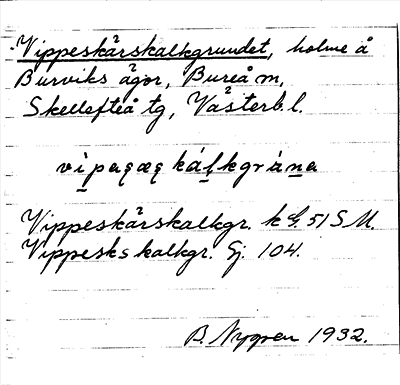 Vippeskärskalkgrundet, holme å
Burviks ägor, Bureå sn,
Skellefteå tg, Västerb. l.
Vippeskärskalkgr. k G. 51 S M.
Vippesks kalkgr. Ej. 104.
B. Nygren 1932.